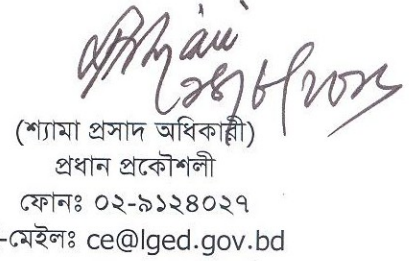 (শ্যামা প্রসাদ অধিকারী)
প্রধান প্রকৌশলী
ফোনঃ ০২-৯১২৪০২৭
-মেইলঃ ce@lged.gov.bd